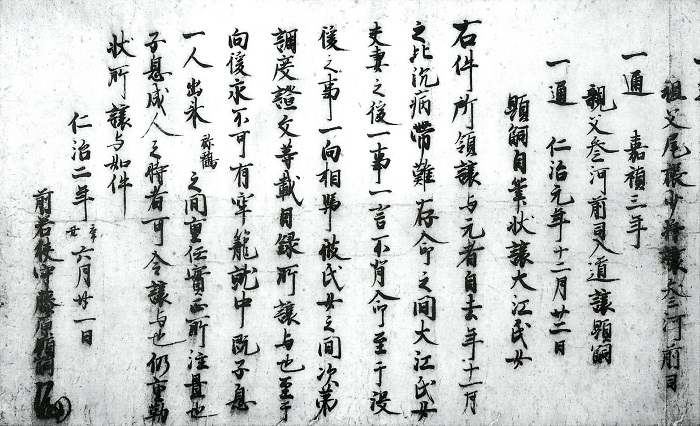 祖父尾張少将譲参河前司
一通 嘉禎三年
親父参河前司入道譲顕嗣
一通 仁治元年十二月廿二日
顕嗣自筆状譲大江氏女
右件所領譲与元者自去年十一月
之比沉病帯難存命之間大江氏女
夫妻之後一事一言不背命至于没
後之事一向相憑彼氏女之間次第
調度證文等載目録所譲与也至于
向後永不可有牢籠就中既子息
一人出来 弥鶴 之間重任實正所注置也
子息成人之時者可令譲与也仍重勒
状所譲与如件
仁治二年 辛丑 六月廿一日
前若狭守藤原顕嗣